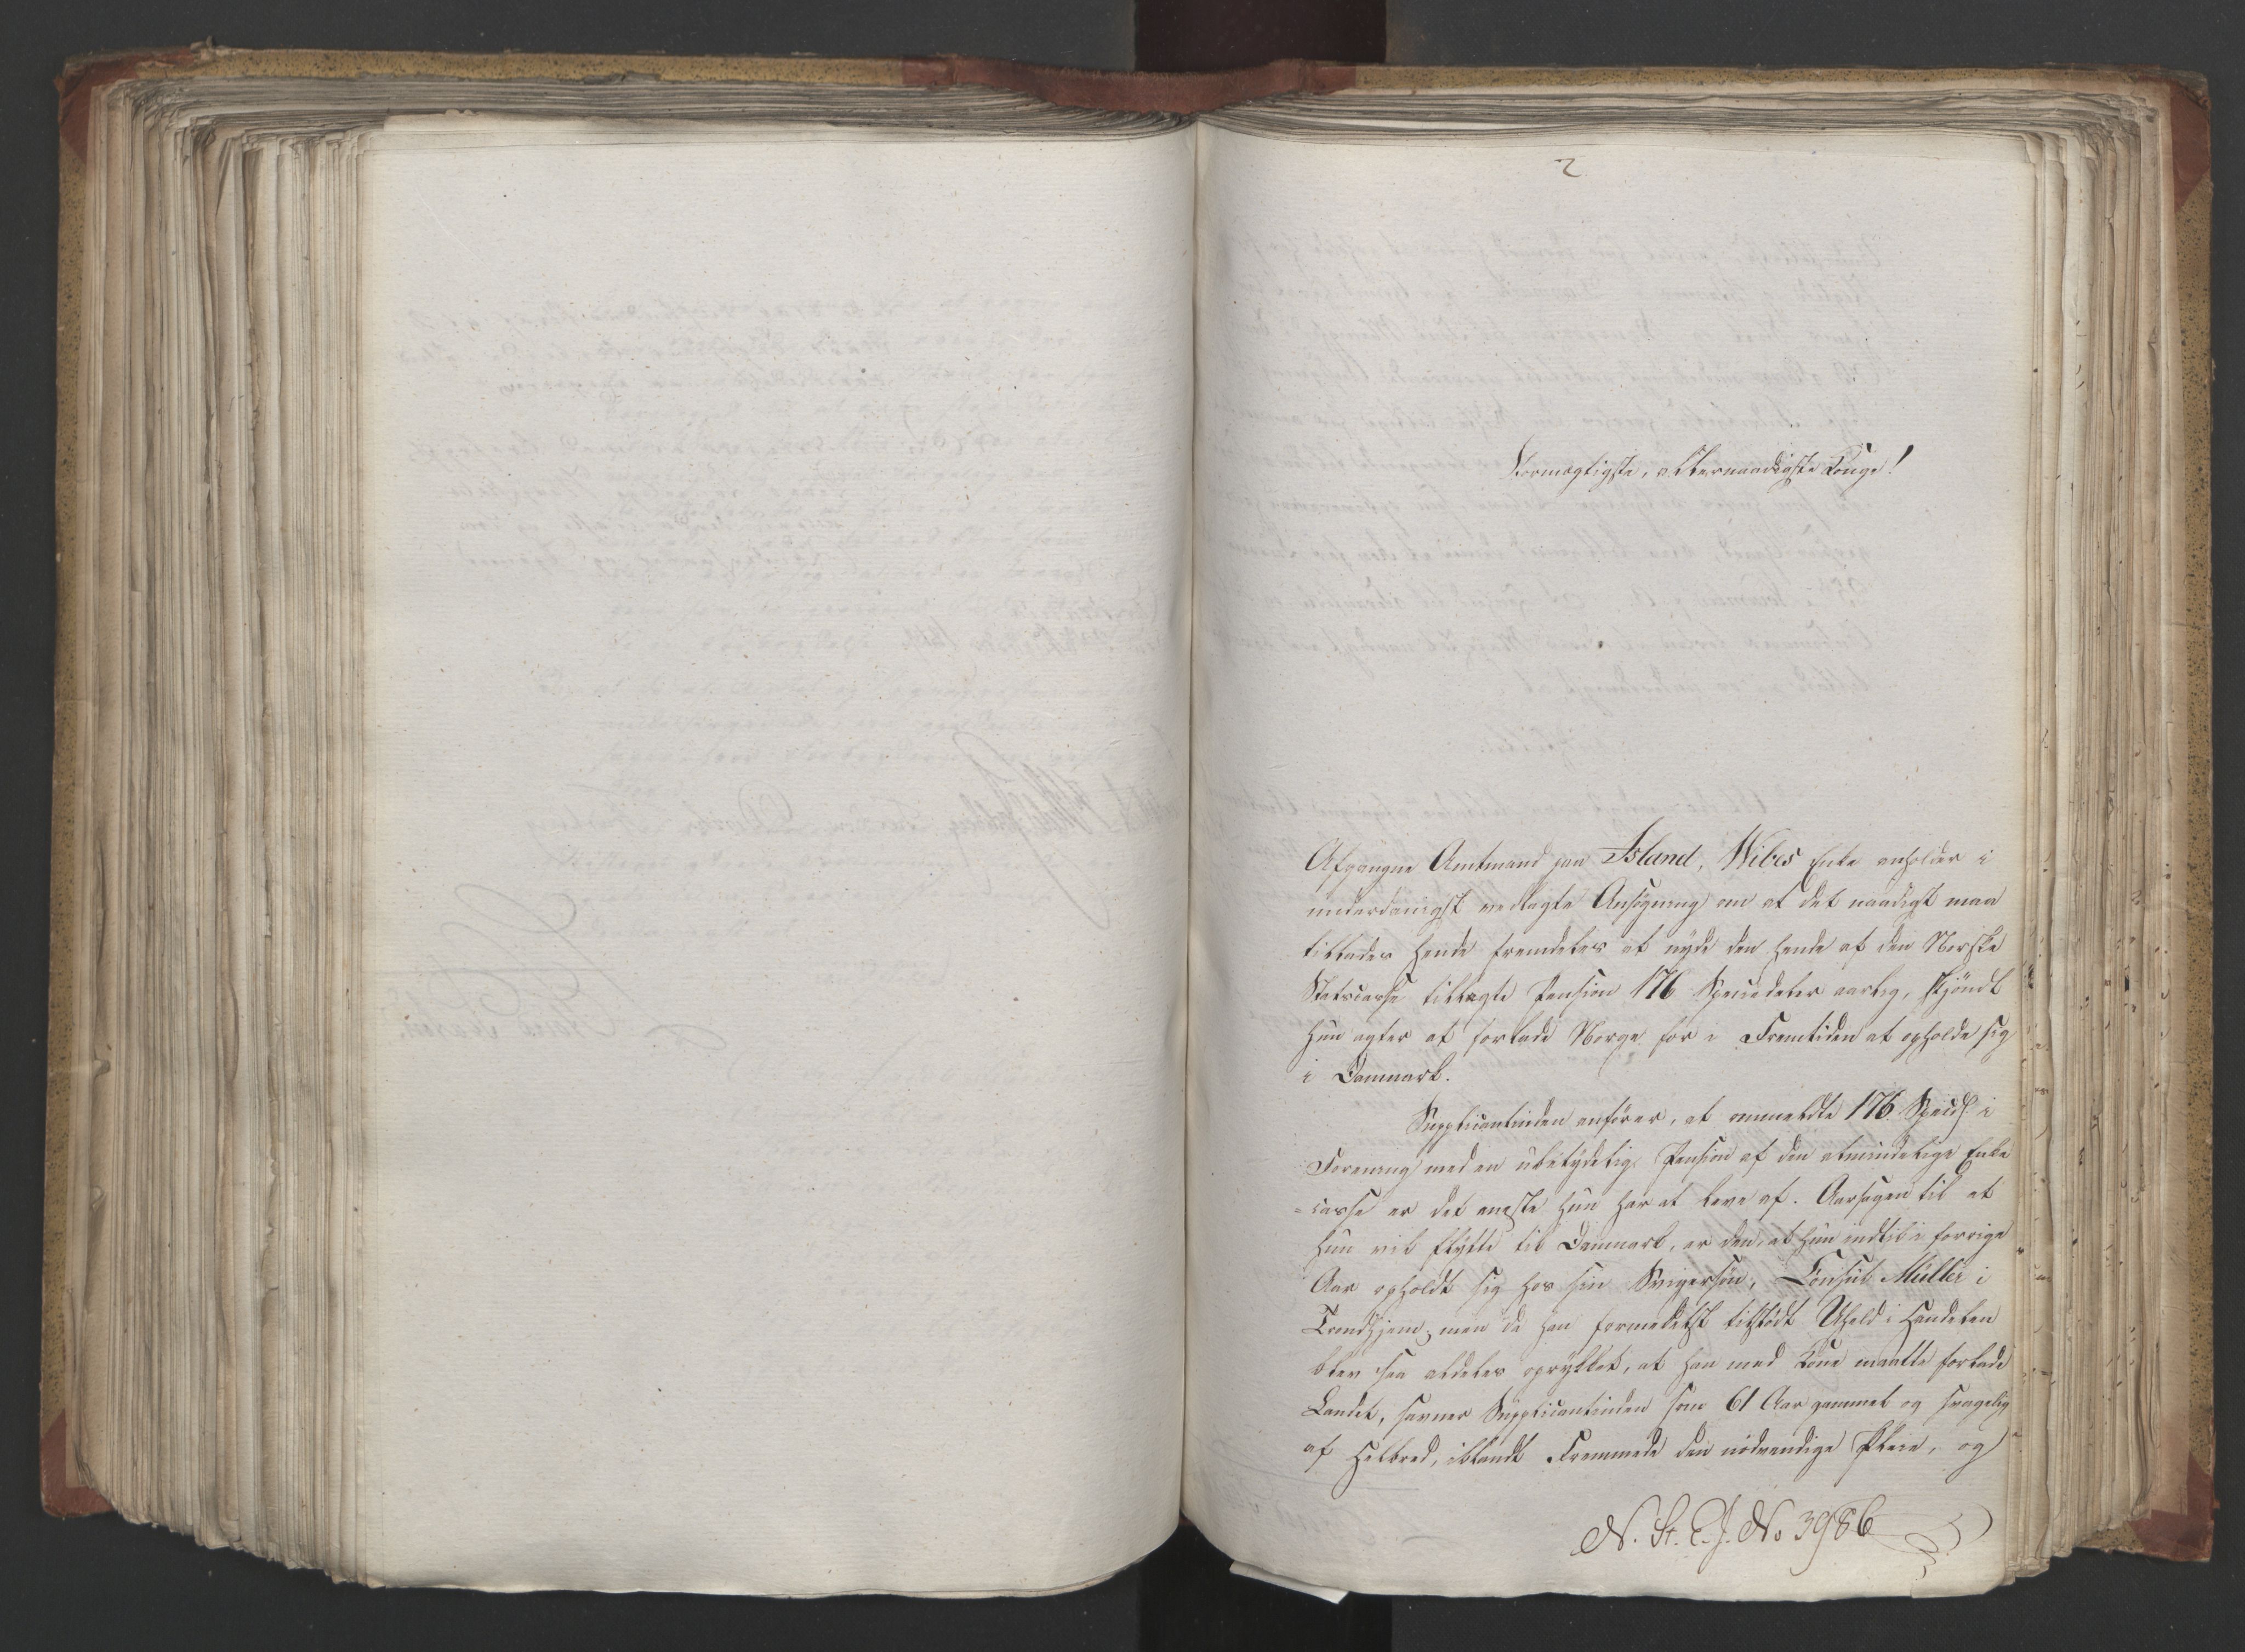 2
Stormægtigste, allernaadigste Konge!
Afgangne Amtmand paa Island, Wibes Enke anholder i
underdanigst vedlagte Ansøgning om at det naadigst maa
tillades hende fremdeles at nyde den hende af den Norske
Statscasse tillagte Pension 176 Speciedaler aarlig, skjöndt
hun agter at forlade Norge for i Fremtiden at opholde sig
i Danmark.
Supplicantinden anförer, at anmeldte 176 Specdlr i
Forening med en ubetydelig Pension af den almindelige Enke
=casse er det eneste hun har at leve af. Aarsagen til at
hun vil flytte til Danmark, er den, at hun indtil i forrige
Aar opholdt sig hos sin Svigersön, Consul Müller i
Trondhjem, men da han formedelst tilstödt Uheld i Handelen
blev saa aldeles oprykket, at han med Kone maatte forlade
Landet, savner Supplicantinden som 61 Aar gammel og svagelig
af Helbred, iblandt Fremmede den nödvendige Pleie, og
N. St. C. J. No 3986